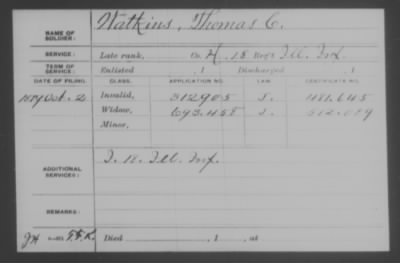 NAME OF SOLDIER: Watkins, Thomas C.
SERVICE: Late rank, Co. H, 18 Reg't Ill. Inf.
TERM OF SERVICE: Enlisted , 1 Discharged , 1
DATE OF FILING. CLASS. APPLICATION NO. LAW. CERTIFICATE NO.
Oct. 2 Invalid, 312905 J. 481.645
Widow, 693.458 J. 512.019
Minor,
ADDITIONAL SERVICES: I. 18. Ill. Inf.
REMARKS:
Died , 1 , at